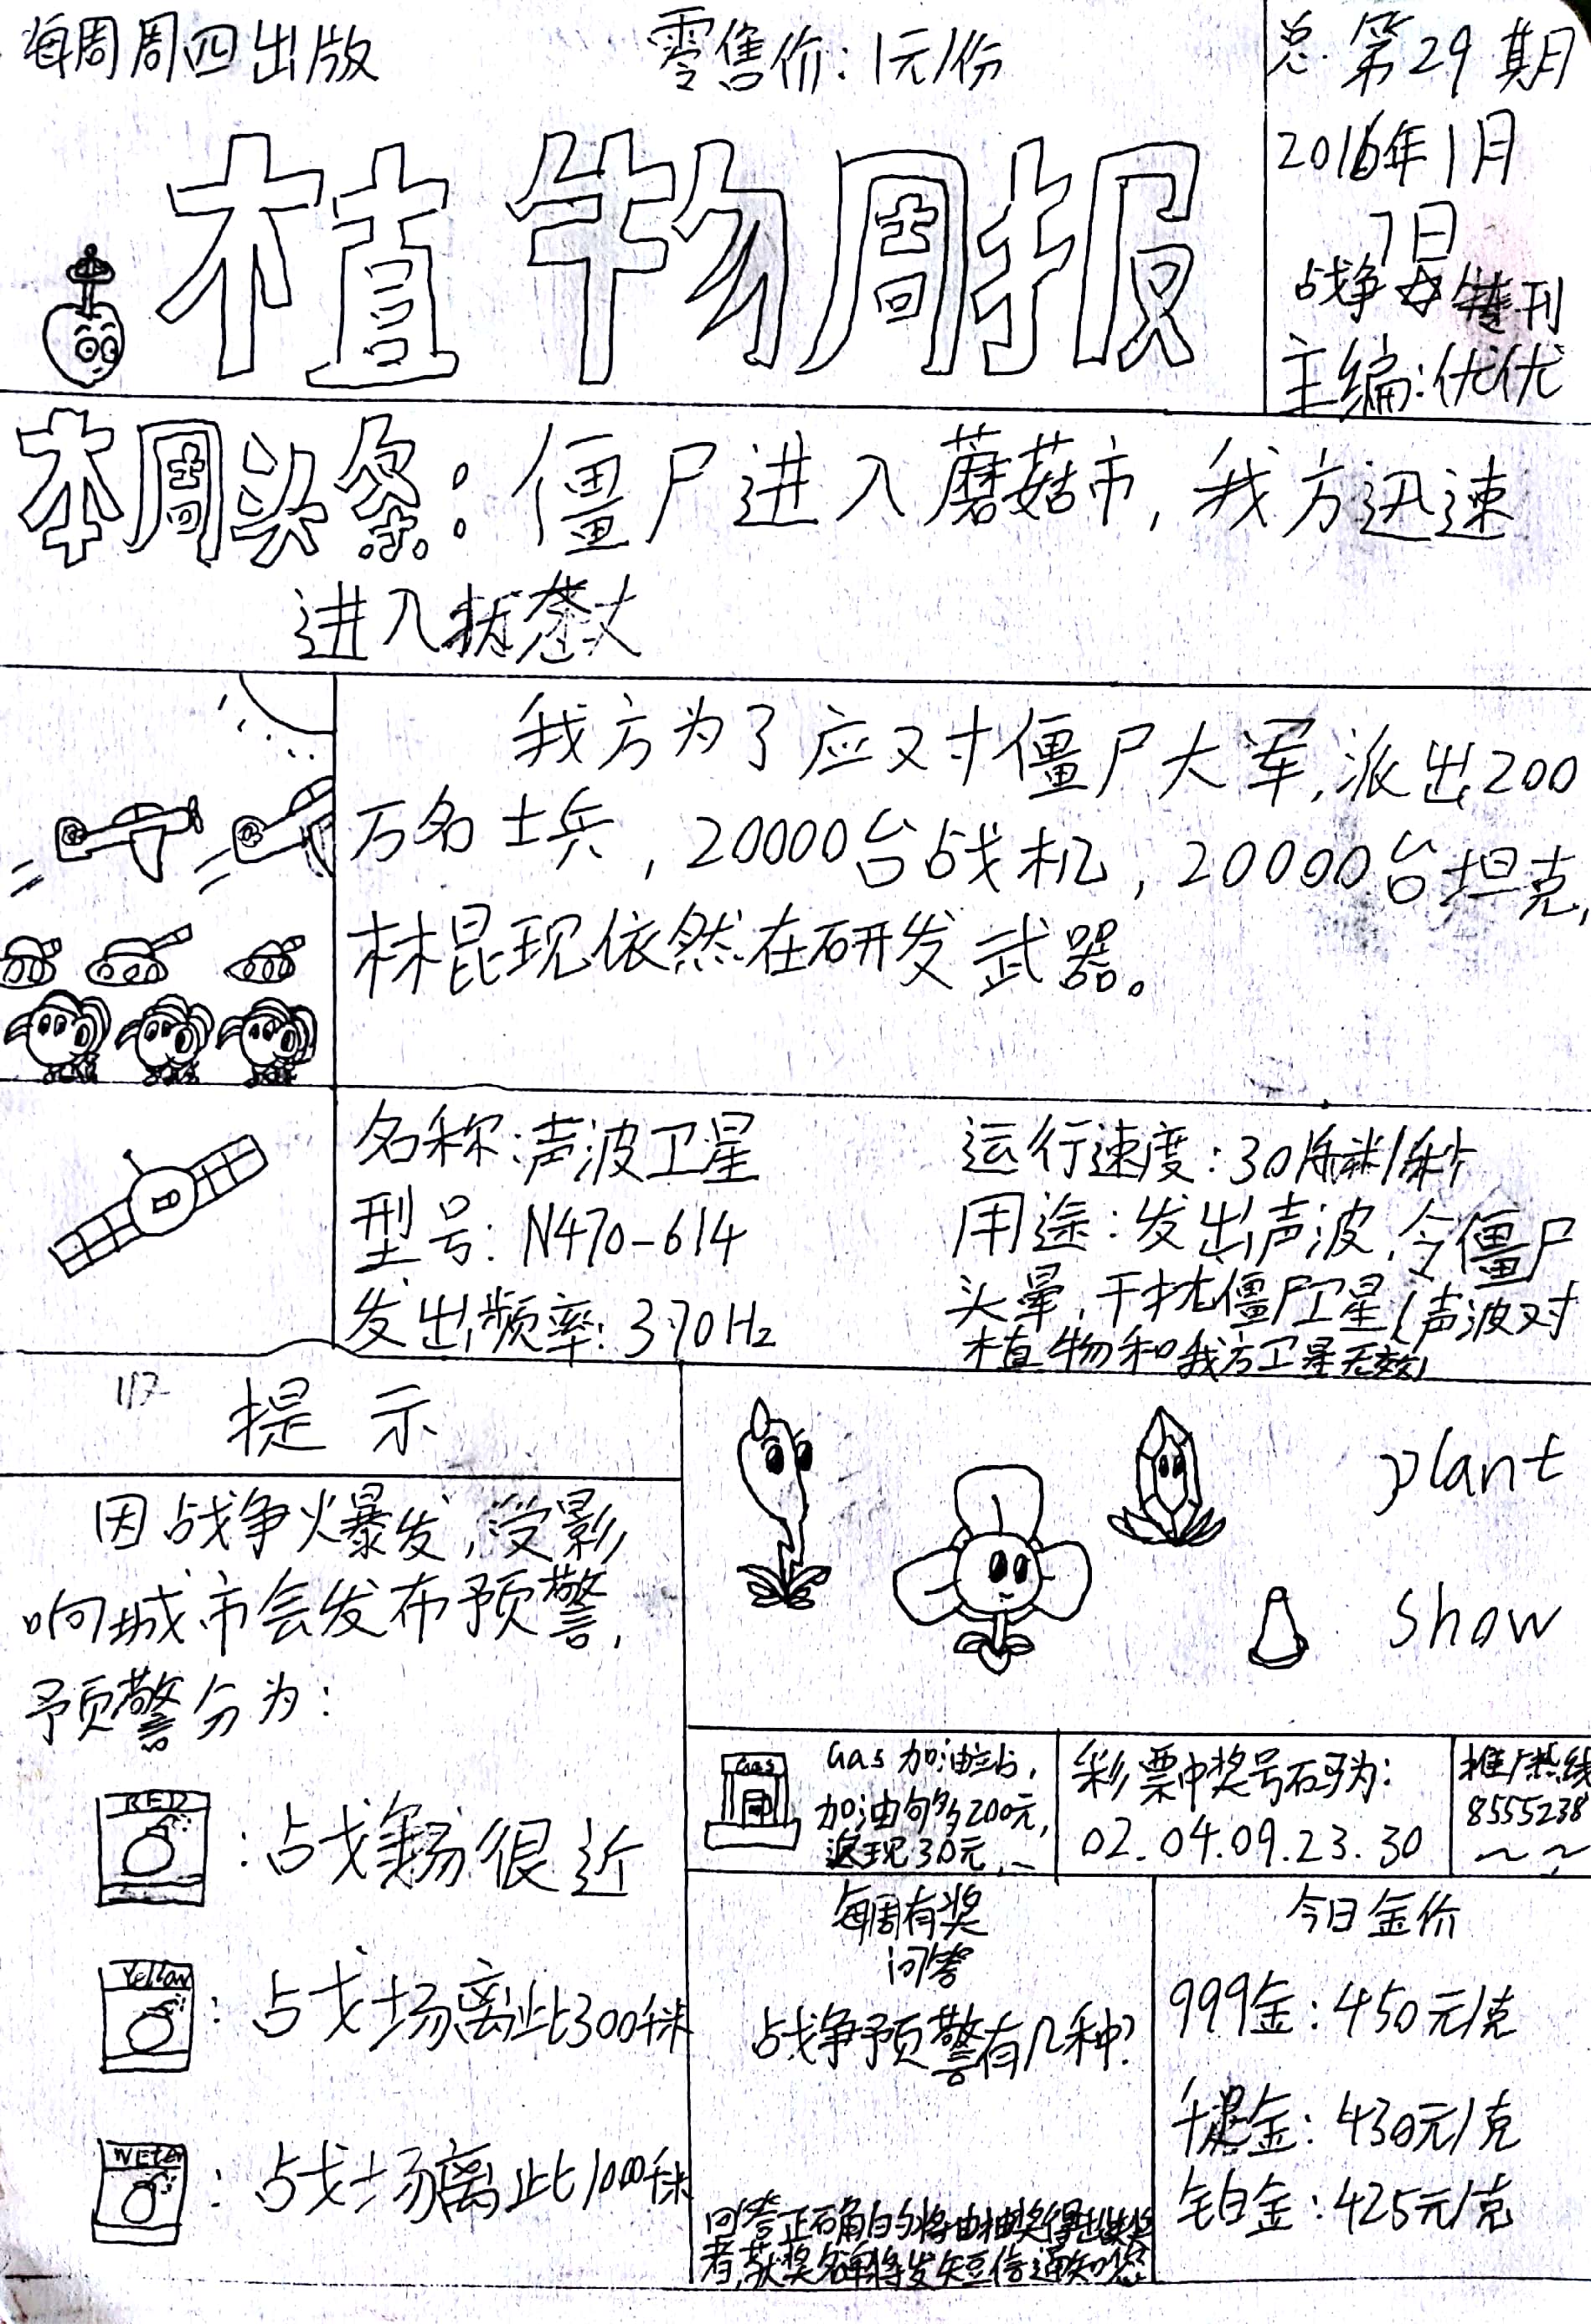 每周周四出版
零售价:1元/份
总第29期
2016年1月
7日
战争特刊
主编:优优
植物周报
本周头条:僵尸进入蘑菇市,我方迅速
进入
我方为了应对僵尸大军,派出200
万名士兵,20000台战机,20000台坦克,
林昆现依然在研发武器。
名称:声波卫星
型号:N470-614
发出频率:370Hz
运行速度:30千米/秒
用途:发出声波,令僵尸
头晕,干扰僵尸卫星(声波对
植物和我方卫星无效)
提示
因战争爆发,受影
响城市会发布预警,
预警分为:
RED
:战场很近
Yellow
:战场离此300千米
:战场离此1000千米
plant
show
Gas
Gas加油站,
加油每200元,
返现30元
彩票中奖号码为:
02.04.09.23.30
推广热线
8555238
每周有奖
问答
战争预警有几种?
回答正确的将由抽奖得出获奖
者,获奖名单将发短信通知您
今日金价
999金:450元/克
千足金:430元/克
铂金:425元/克